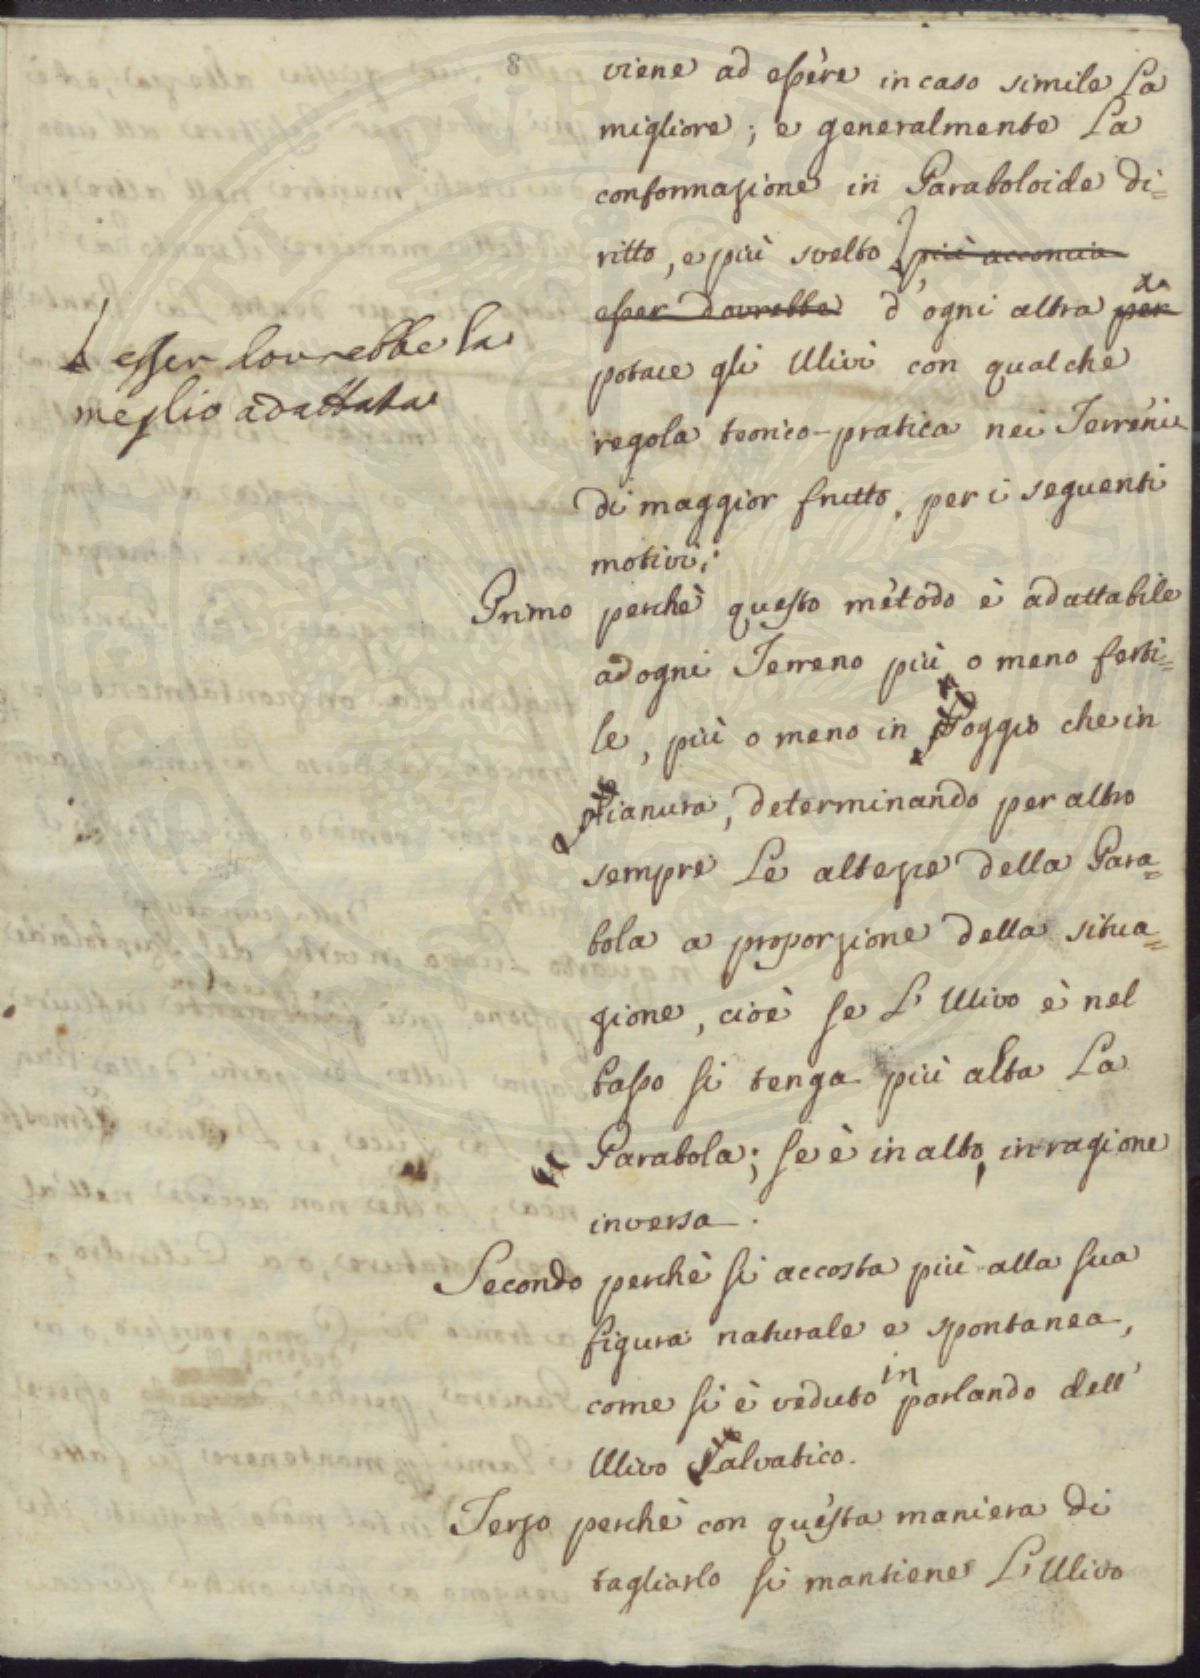 8
viene ad essere in caso simile La
migliore; e generalmente La
conformazione in Paraboloide di=
ritto, e più svelto più acconcia
esser dovrebbe d'ogni altra per da
esser dovrebbe la
meglio adattata
potare gli Ulivi con qualche
regola teorico-pratica nei Terreni
di maggior frutto, per i seguenti
motivi:
Primo perchè questo metodo è adattabile
ad ogni Terreno più o meno ferti=
le, più o meno in Poggio che in
Pianura, determinando per altro
sempre Le altezze della Para=
bola a proporzione della situa=
zione, cioè se L'Ulivo è nel
basso si tenga più alta La
Parabola; se è in alto, in ragione
inversa.
Secondo perchè si accosta più alla sua
figura naturale e spontanea,
come si è veduto in parlando dell'
Ulivo Salvatico.
Terzo perchè con questa maniera di
tagliarlo si mantiene L'Ulivo